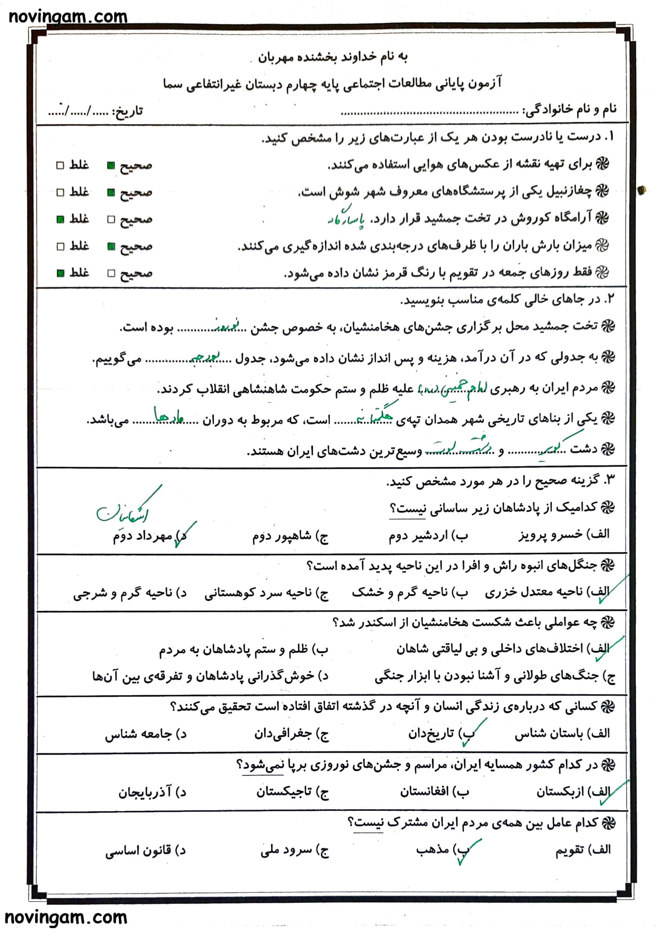 novingam.com
به نام خداوند بخشنده مهربان
آزمون پایانی مطالعات اجتماعی پایه چهارم دبستان غیرانتفاعی سما
نام و نام خانوادگی: ........................................ تاریخ: ...../...../.....
۱. درست یا نادرست بودن هر یک از عبارت‌های زیر را مشخص کنید.
برای تهیه نقشه از عکس‌های هوایی استفاده می‌کنند. صحیح ■ غلط □
چغازنبیل یکی از پرستشگاه‌های معروف شهر شوش است. صحیح ■ غلط □
آرامگاه کوروش در تخت جمشید قرار دارد. پاسارگاد صحیح □ غلط ■
میزان بارش باران را با ظرف‌های درجه‌بندی شده اندازه‌گیری می‌کنند. صحیح ■ غلط □
فقط روزهای جمعه در تقویم با رنگ قرمز نشان داده می‌شود. صحیح □ غلط ■
۲. در جاهای خالی کلمه‌ی مناسب بنویسید.
تخت جمشید محل برگزاری جشن‌های هخامنشیان، به خصوص جشن نوروز بوده است.
به جدولی که در آن درآمد، هزینه و پس انداز نشان داده می‌شود، جدول بودجه می‌گوییم.
مردم ایران به رهبری امام خمینی علیه ظلم و ستم حکومت شاهنشاهی انقلاب کردند.
یکی از بناهای تاریخی شهر همدان تپه‌ی هگمتانه است، که مربوط به دوران مادها می‌باشد.
دشت کویر و دشت لوت وسیع‌ترین دشت‌های ایران هستند.
۳. گزینه صحیح را در هر مورد مشخص کنید.
اشکانیان
کدامیک از پادشاهان زیر ساسانی نیست؟
الف) خسرو پرویز ب) اردشیر دوم ج) شاهپور دوم د) مهرداد دوم
جنگل‌های انبوه راش و افرا در این ناحیه پدید آمده است؟
الف) ناحیه معتدل خزری ب) ناحیه گرم و خشک ج) ناحیه سرد کوهستانی د) ناحیه گرم و شرجی
چه عواملی باعث شکست هخامنشیان از اسکندر شد؟
الف) اختلاف‌های داخلی و بی لیاقتی شاهان ب) ظلم و ستم پادشاهان به مردم
ج) جنگ‌های طولانی و آشنا نبودن با ابزار جنگی د) خوش‌گذرانی پادشاهان و تفرقه‌ی بین آن‌ها
کسانی که درباره‌ی زندگی انسان و آنچه در گذشته اتفاق افتاده است تحقیق می‌کنند؟
الف) باستان شناس ب) تاریخ‌دان ج) جغرافی‌دان د) جامعه شناس
در کدام کشور همسایه ایران، مراسم و جشن‌های نوروزی برپا نمی‌شود؟
الف) ازبکستان ب) افغانستان ج) تاجیکستان د) آذربایجان
کدام عامل بین همه‌ی مردم ایران مشترک نیست؟
الف) تقویم ب) مذهب ج) سرود ملی د) قانون اساسی
novingam.com